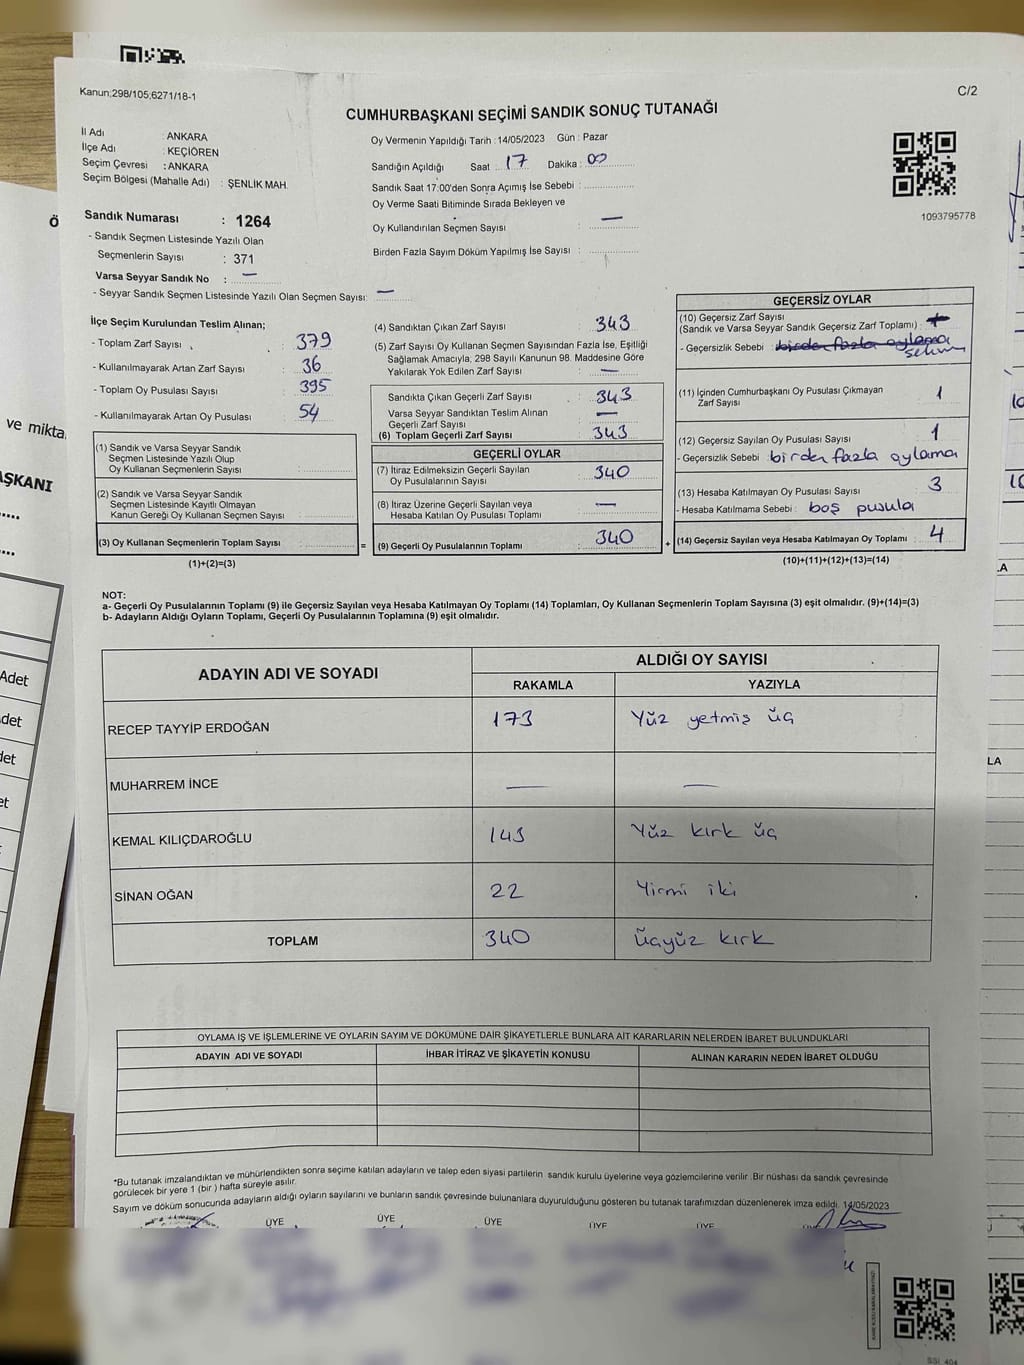 Kanun;298/105;6271/18-1
C/2
CUMHURBAŞKANI SEÇİMİ SANDIK SONUÇ TUTANAĞI
İl Adı : ANKARA
İlçe Adı : KEÇİÖREN
Seçim Çevresi : ANKARA
Seçim Bölgesi (Mahalle Adı) : ŞENLİK MAH.
Oy Vermenin Yapıldığı Tarih :14/05/2023 Gün : Pazar
Sandığın Açıldığı Saat : 17 Dakika : 00
Sandık Saat 17:00'den Sonra Açımış İse Sebebi :
Oy Verme Saati Bitiminde Sırada Bekleyen ve
Oy Kullandırılan Seçmen Sayısı : —
Birden Fazla Sayım Döküm Yapılmış İse Sayısı :
1093795778
Sandık Numarası : 1264
- Sandık Seçmen Listesinde Yazılı Olan
Seçmenlerin Sayısı : 371
Varsa Seyyar Sandık No : —
- Seyyar Sandık Seçmen Listesinde Yazılı Olan Seçmen Sayısı: —
İlçe Seçim Kurulundan Teslim Alınan;
- Toplam Zarf Sayısı : 379
- Kullanılmayarak Artan Zarf Sayısı : 36
- Toplam Oy Pusulası Sayısı : 395
- Kullanılmayarak Artan Oy Pusulası : 54
(1) Sandık ve Varsa Seyyar Sandık
Seçmen Listesinde Yazılı Olup
Oy Kullanan Seçmenlerin Sayısı :
(2) Sandık ve Varsa Seyyar Sandık
Seçmen Listesinde Kayıtlı Olmayan
Kanun Gereği Oy Kullanan Seçmen Sayısı :
(3) Oy Kullanan Seçmenlerin Toplam Sayısı :
(1)+(2)=(3)
=
(4) Sandıktan Çıkan Zarf Sayısı : 343
(5) Zarf Sayısı Oy Kullanan Seçmen Sayısından Fazla İse, Eşitliği
Sağlamak Amacıyla; 298 Sayılı Kanunun 98. Maddesine Göre
Yakılarak Yok Edilen Zarf Sayısı : —
Sandıkta Çıkan Geçerli Zarf Sayısı : 343
Varsa Seyyar Sandıktan Teslim Alınan
Geçerli Zarf Sayısı : —
(6) Toplam Geçerli Zarf Sayısı : 343
GEÇERLİ OYLAR
(7) İtiraz Edilmeksizin Geçerli Sayılan
Oy Pusulalarının Sayısı : 340
(8) İtiraz Üzerine Geçerli Sayılan veya
Hesaba Katılan Oy Pusulası Toplamı : —
(9) Geçerli Oy Pusulalarının Toplamı : 340
+
GEÇERSİZ OYLAR
(10) Geçersiz Zarf Sayısı
(Sandık ve Varsa Seyyar Sandık Geçersiz Zarf Toplamı) :
- Geçersizlik Sebebi : birden fazla oylama
(11) İçinden Cumhurbaşkanı Oy Pusulası Çıkmayan
Zarf Sayısı : 1
(12) Geçersiz Sayılan Oy Pusulası Sayısı : 1
- Geçersizlik Sebebi : birden fazla oylama
(13) Hesaba Katılmayan Oy Pusulası Sayısı : 3
- Hesaba Katılmama Sebebi : boş pusula
(14) Geçersiz Sayılan veya Hesaba Katılmayan Oy Toplamı : 4
(10)+(11)+(12)+(13)=(14)
NOT:
a- Geçerli Oy Pusulalarının Toplamı (9) ile Geçersiz Sayılan veya Hesaba Katılmayan Oy Toplamı (14) Toplamları, Oy Kullanan Seçmenlerin Toplam Sayısına (3) eşit olmalıdır. (9)+(14)=(3)
b- Adayların Aldığı Oyların Toplamı, Geçerli Oy Pusulalarının Toplamına (9) eşit olmalıdır.
ADAYIN ADI VE SOYADI ALDIĞI OY SAYISI
RAKAMLA YAZIYLA
RECEP TAYYİP ERDOĞAN 173 Yüz yetmiş üç
MUHARREM İNCE — —
KEMAL KILIÇDAROĞLU 143 Yüz kırk üç
SİNAN OĞAN 22 Yirmi iki
TOPLAM 340 Üçyüz kırk
OYLAMA İŞ VE İŞLEMLERİNE VE OYLARIN SAYIM VE DÖKÜMÜNE DAİR ŞİKAYETLERLE BUNLARA AİT KARARLARIN NELERDEN İBARET BULUNDUKLARI
ADAYIN ADI VE SOYADI İHBAR İTİRAZ VE ŞİKAYETİN KONUSU ALINAN KARARIN NEDEN İBARET OLDUĞU
*Bu tutanak imzalandıktan ve mühürlendikten sonra seçime katılan adayların ve talep eden siyasi partilerin sandık kurulu üyelerine veya gözlemcilerine verilir. Bir nüshası da sandık çevresinde
görülecek bir yere 1 (bir ) hafta süreyle asılır.
Sayım ve döküm sonucunda adayların aldığı oyların sayılarını ve bunların sandık çevresinde bulunanlara duyurulduğunu gösteren bu tutanak tarafımızdan düzenlenerek imza edildi. 14/05/2023
ÜYE ÜYE ÜYE ÜYE ÜYE
ve mikta
AŞKANI
Adet